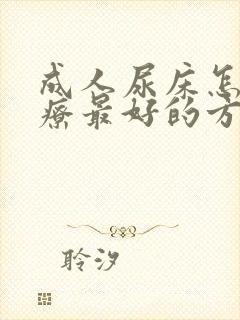 成人尿床怎
疗最好的方
聆汐